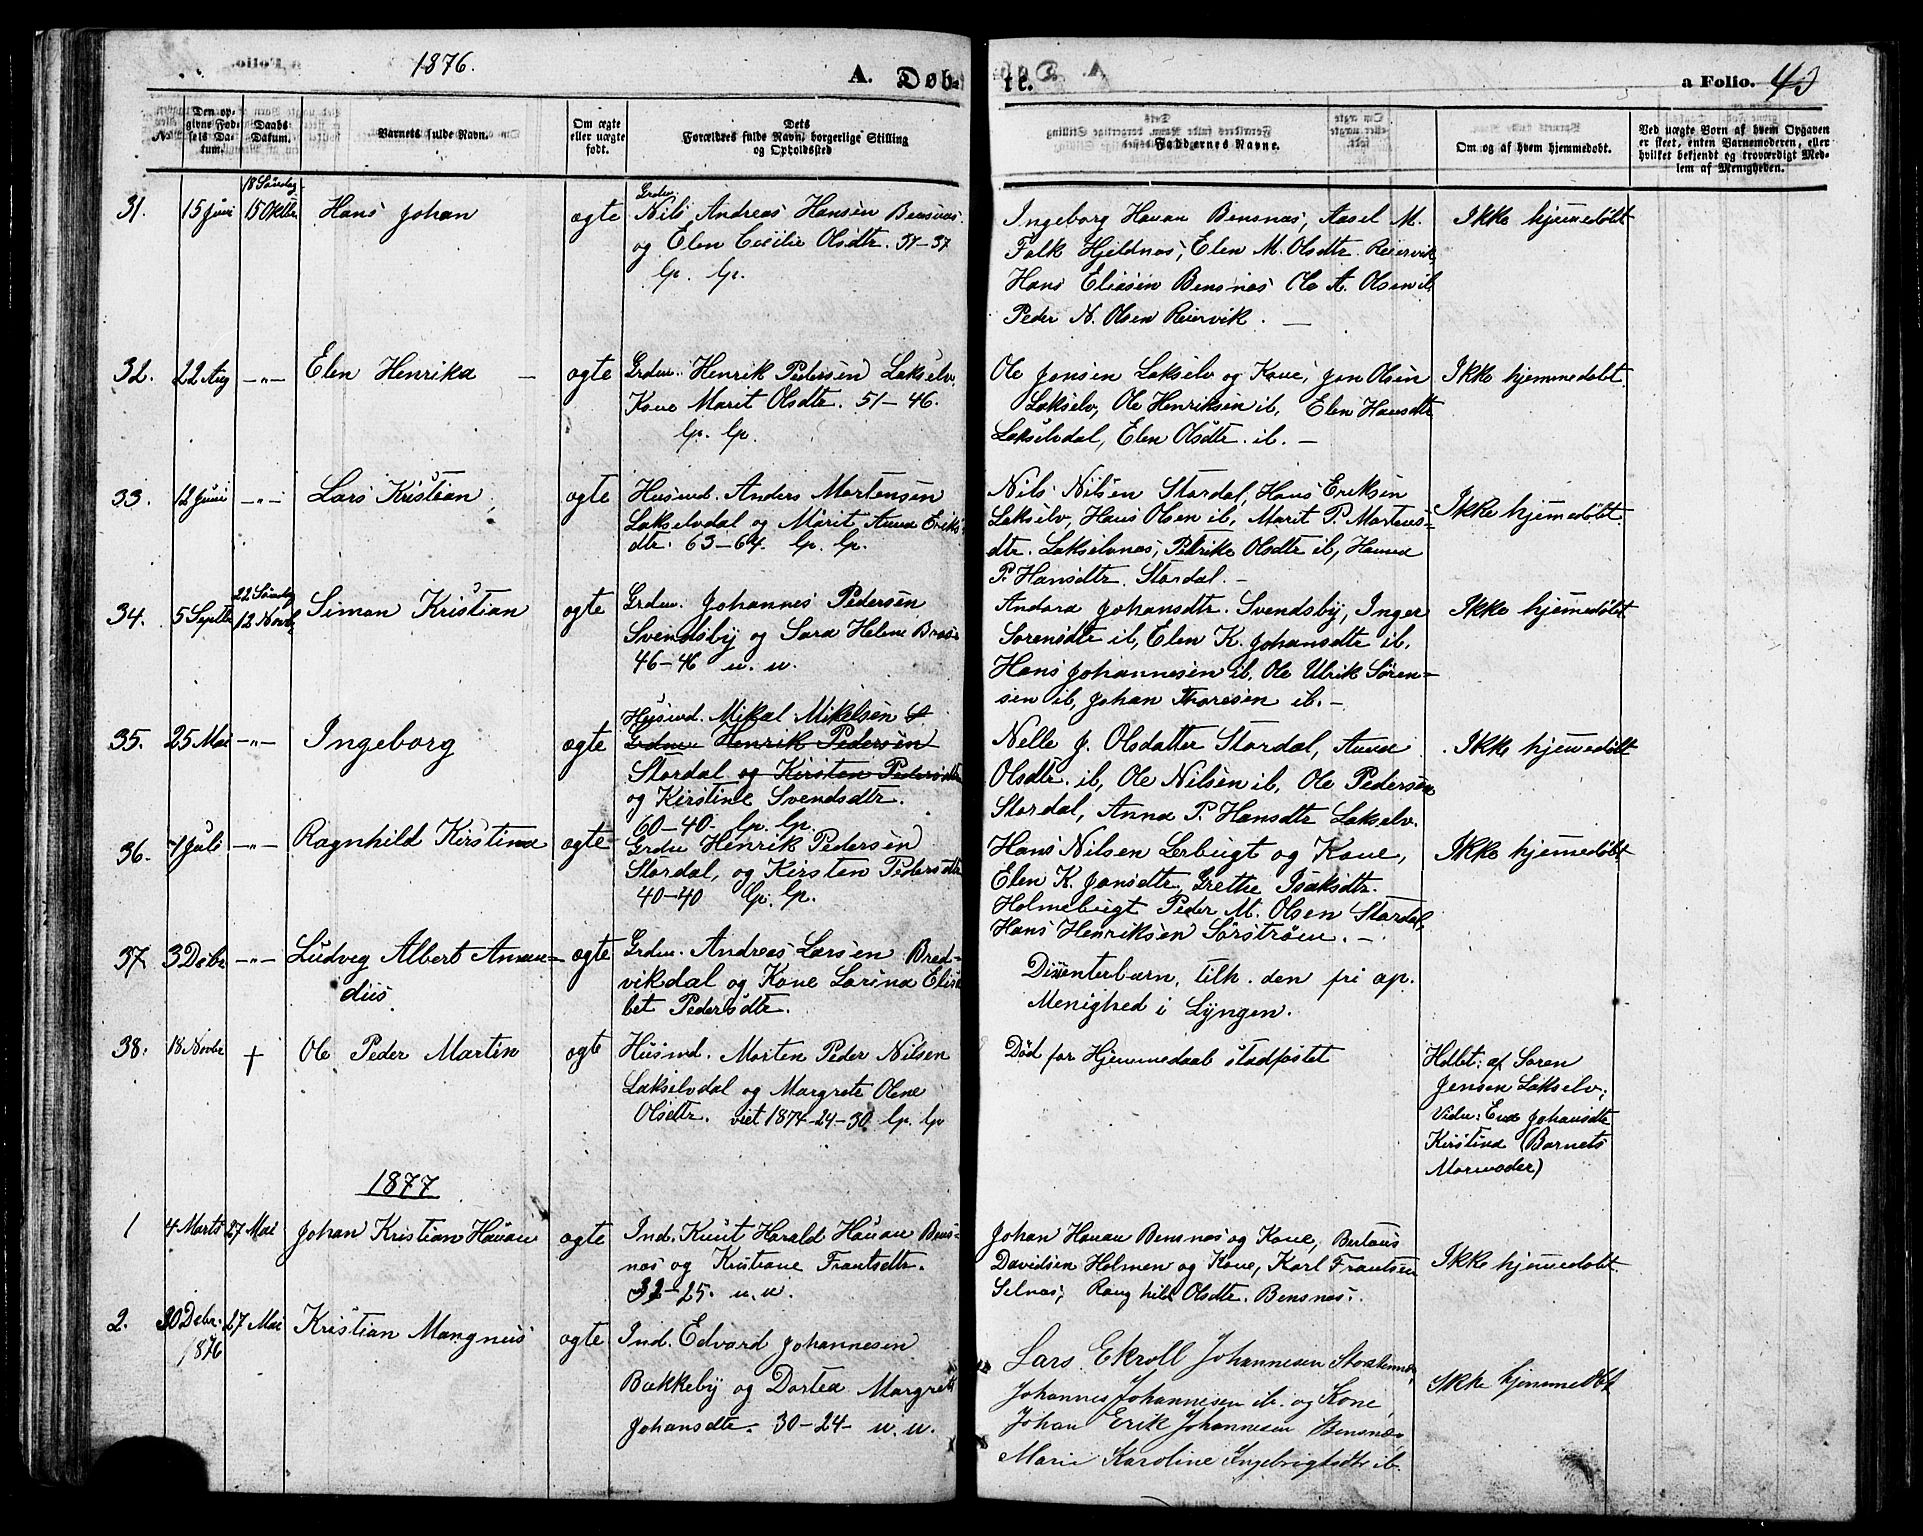 1876.
A. Døb-
te.
a Folio. 43
No.
Den op-
givne Fød-
sels Da-
tum.
Daabs
Datum.
Barnets fulde Navn.
Om ægte
eller uægte
født.
Dets
Forældres fulde Navn, borgerlige Stilling
og Opholdssted
Faddernes Navne.
Om og af hvem hjemmedøbt.
Ved uægte Børn af hvem Opgaven
er skeet, enten Barnemoderen, eller
hvilket bekjendt og troværdigt Med-
lem af Menigheden.
31. 15 Juni 18 Søndag 15 Oktbr Hans Johan ægte
Grdm.
Nils Andreas Hansen Bensnæs
og Elen Cecilie Olsdtr. 31-37
lp. lp.
Ingeborg Havan Bensnæs, Aasel M.
Falk Hjeldnæs, Elen M. Olsdtr. Reiervik
Hans Eliasen Bensnæs Ole A. Olsen ib.
Peder N. Olsen Reiervik. —
Ikke hjemmedøbt
32. 22 Aug —"— Elen Henrika — ægte
Grdm. Henrik Pedersen Lakselv
Kone Marit Olsdtr. 51-46.
lp. lp.
Ole Jensen Lakselv og Kone, Jon Olsen
Lakselv, Ole Henriksen ib, Elen Hansdtr
Lakselvdal, Elen Olsdtr. ib. —
Ikke hjemmedøbt.
33. 12 Juni —"— Lars Kristian ægte
Husmd. Anders Mortensen
Lakselvdal og Marit Anna Eriks
dtr. 63-64. lp. lp.
Nils Nilsen Stordal, Hans Eriksen
Lakselv, Hans Olsen ib, Marit P. Martens-
dtr. Lakselvnæs, Petrike Olsdtr ib, Hanna
P. Hansdtr. Stordal. —
Ikke hjemmedøbt.
34. 5 Septbr 22 Søndag 12 Novbr Simon Kristian ægte
Grdm. Johannes Pedersen
Svendsby og Sara Helene Bras-
46-46 n. n.
Andora Johansdtr. Svendsby, Inger
Sorensdtr ib, Elen K. Johansdtr ib.
Hans Johannesen ib. Ole Ulrik Søren-
sen ib, Johan Thoresen ib. —
Ikke hjemmedøbt
35. 25 Mai —"— Ingeborg ægte
Husmd. Mikal Mikelsen
Grdm. Henrik Pedersen
Stordal og Kirsten Pedersdtr
og Kirstine Svendsdtr.
60-40. lp. lp.
Nelle J. Olsdatter Stordal, Anna
Olsdtr. ib, Ole Nilsen ib, Ole Pedersen
Stordal, Anna P. Hansdtr Lakselv.
Ikke hjemmedøbt
36. 7 Juli —"— Ragnhild Kirstina ægte
Grdm Henrik Pedersen
Stordal, og Kirsten Pedersdtr
40-40 lp. lp.
Hans Nilsen Lerbugt og Kone,
Elen K. Jonsdtr, Grethe Isaksdtr.
Holmebugt Peder M. Olsen Stordal,
Hans Henriksen Sørstrøm. —
Ikke hjemmedøbt
37. 3 Debr —"— Ludvig Albert Aman-
dus ægte
Grdm. Andreas Larsen Bred-
vikdal og Kone Lorina Elisa
bet Pedersdtr.
Dissenterbarn, tilh. den fri ap.
Menighed i Lyngen.
38. 18 Novbr † Ole Peder Martin ægte
Husmd. Morten Peder Nilsen
Lakselvdal og Margrete Olene
Olsdtr. viet 1874-24-30 lp. lp
Død før Hjemmedaab stadfæstet
Hdbt: af Soren
Jensen Lakselv;
Vidn: Eva Johansdtr
Kirstina (Barnets
Mormoder)
1877
1 4 Marts 27 Mai Johan Kristian Havan ægte
Ind. Knut Harald Havan Bens-
næs og Kristiane Frantsdtr.
32-25. n. n.
Johan Havan Bensnæs og Kone, Bertaus
Davidsen Holmen og Kone, Karl Frantsen
Selnæs, Rang hild Olsdtr. Bensnæs.
Ikke hjemmedøbt.
2. 30 Debr. 1876 27 Mai Kristian Mangnus ægte
Ind. Edvard Johannesen
Bakkeby og Dortea Margret
Johansdtr. 30-24- n. n.
Lars Ekroll Johannesen Storstennæs,
Johannes Johannesen ib. og Kone,
Johan Erik Johannesen Bensnæs
Marie Karoline Ingebrigtsdtr ib.
Ikke hjemmedøbt